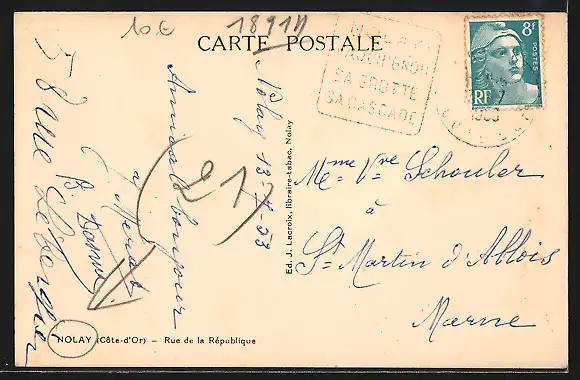 10€
18911
CARTE POSTALE
NOLAY
SA GROTTE
SA CASCADE
8f
POSTES
RF
Nolay 13-7-53
Amical bonjour
à
B.
58 rue
21
Ed. J. Lacroix, libraire-tabac, Nolay
Mme Vve Schouler
à
St Martin d'Ablois
Marne
NOLAY (Côte-d'Or) — Rue de la République